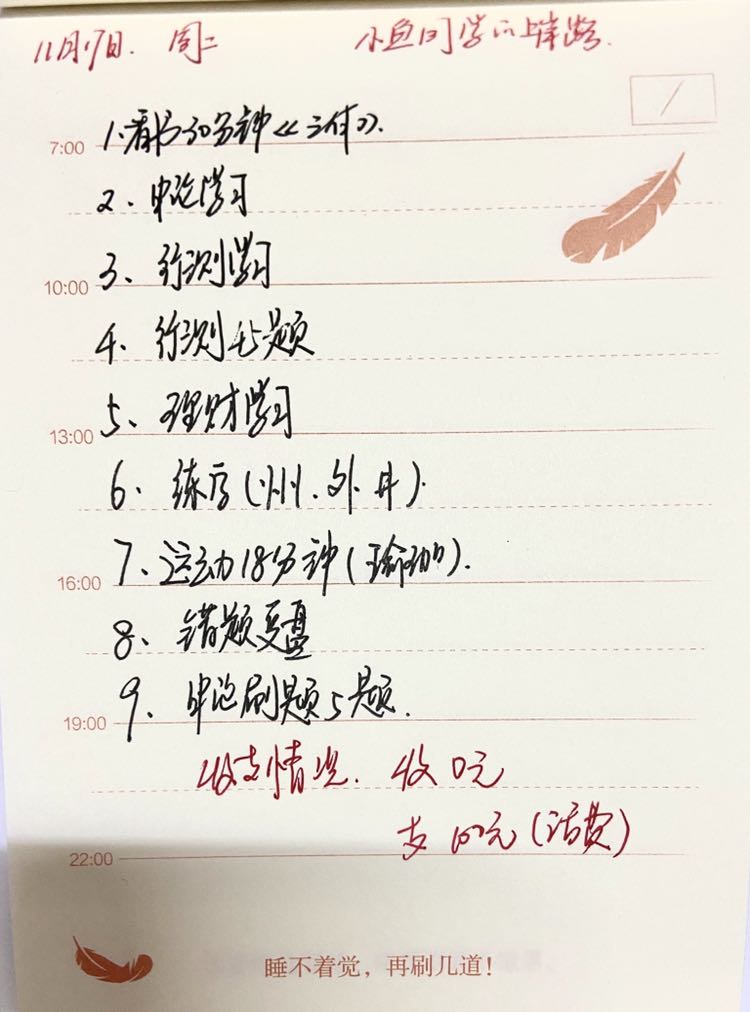 11月17日. 周二 小鱼同学的上岸路.
1.看书30分钟《三体》.
7:00
2. 申论学习
3. 行测学习
10:00
4. 行测45题
5. 理财学习
13:00
6. 练字(州.外.井).
7.运动18分钟(瑜珈).
16:00
8、错题复盘
9、申论刷题5题.
19:00
收支情况. 收0元
支100元(话费)
22:00
睡不着觉，再刷几道!